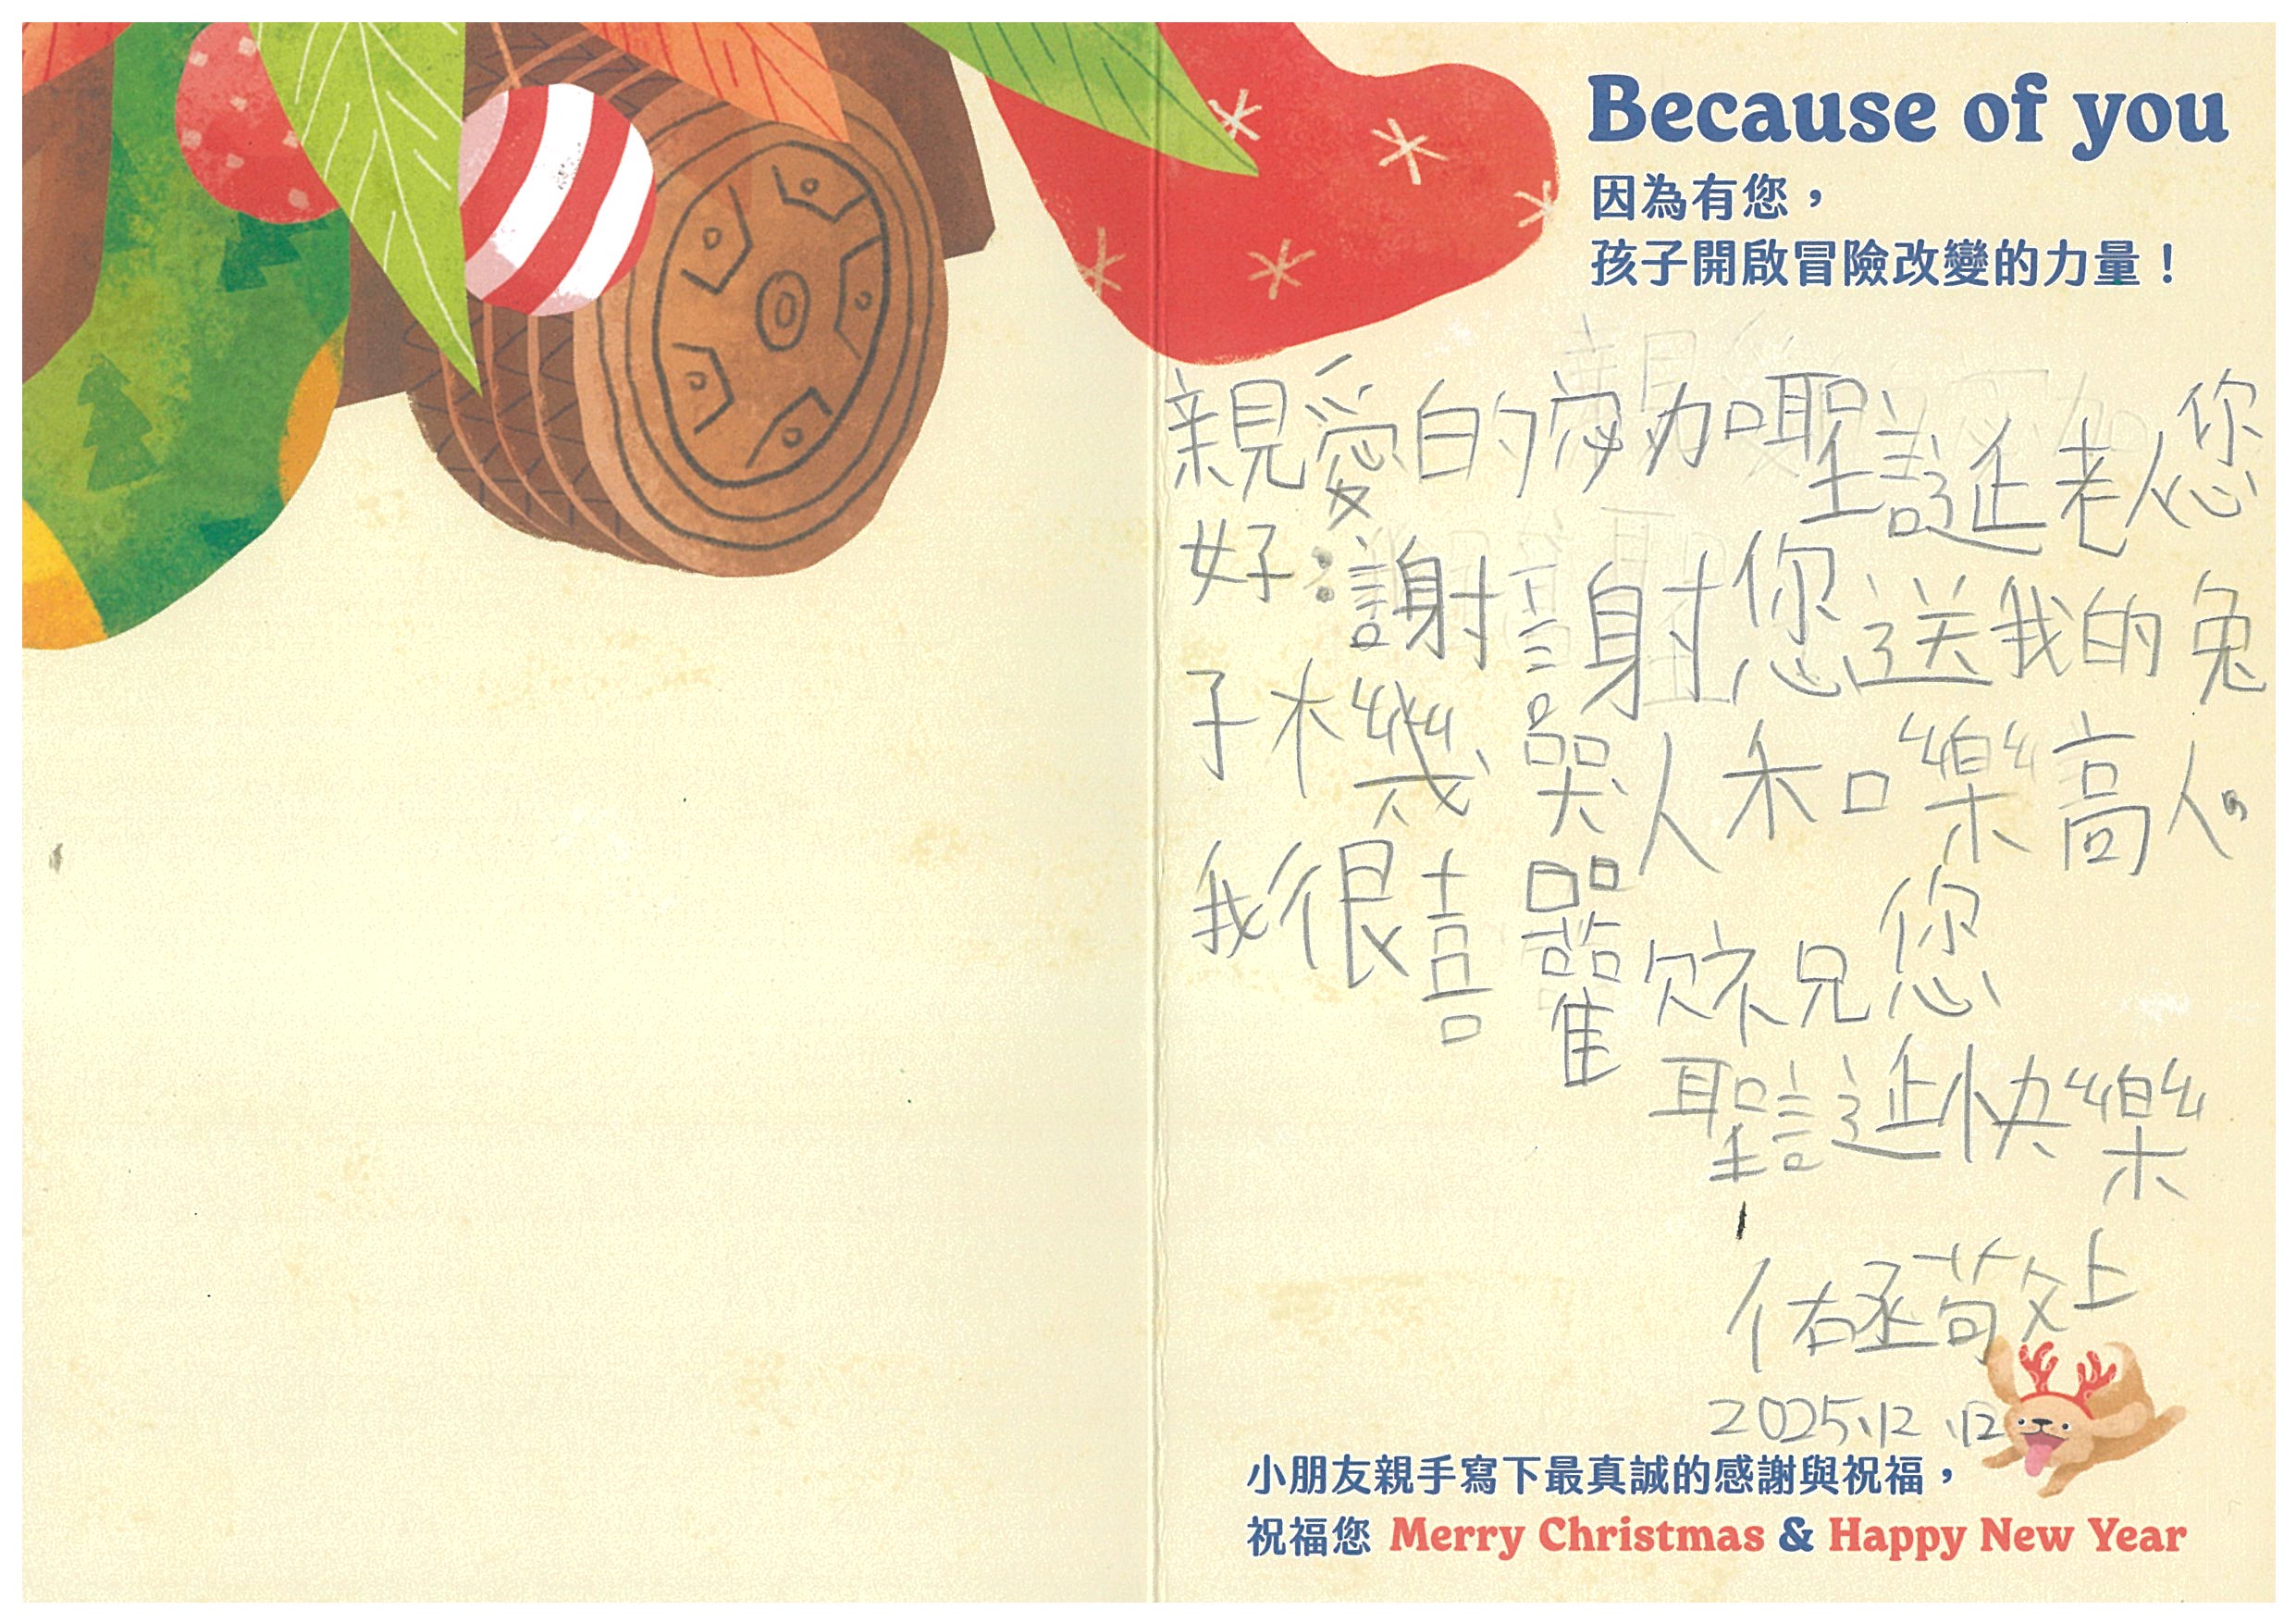 Because of you
因為有您，
孩子開啟冒險改變的力量！
親愛的愛加哩聖誕老人您
好：謝謝您送我的兔
子木幾器人和口樂高人。
我很喜歡祝您
聖誕快樂
佑丞敬上
2025.12.12
小朋友親手寫下最真誠的感謝與祝福，
祝福您 Merry Christmas & Happy New Year